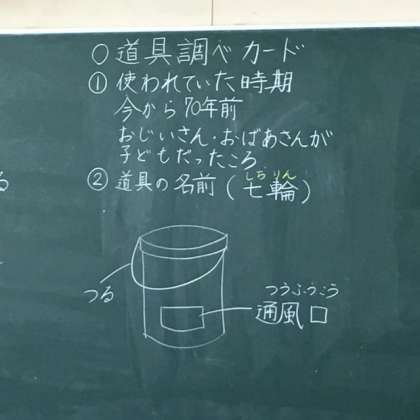 ○道具調べカード
①使われていた時期
今から70年前
おじいさん・おばあさんが
子どもだったころ
②道具の名前(七輪)
しちりん
つる
つうふうこう
通風口